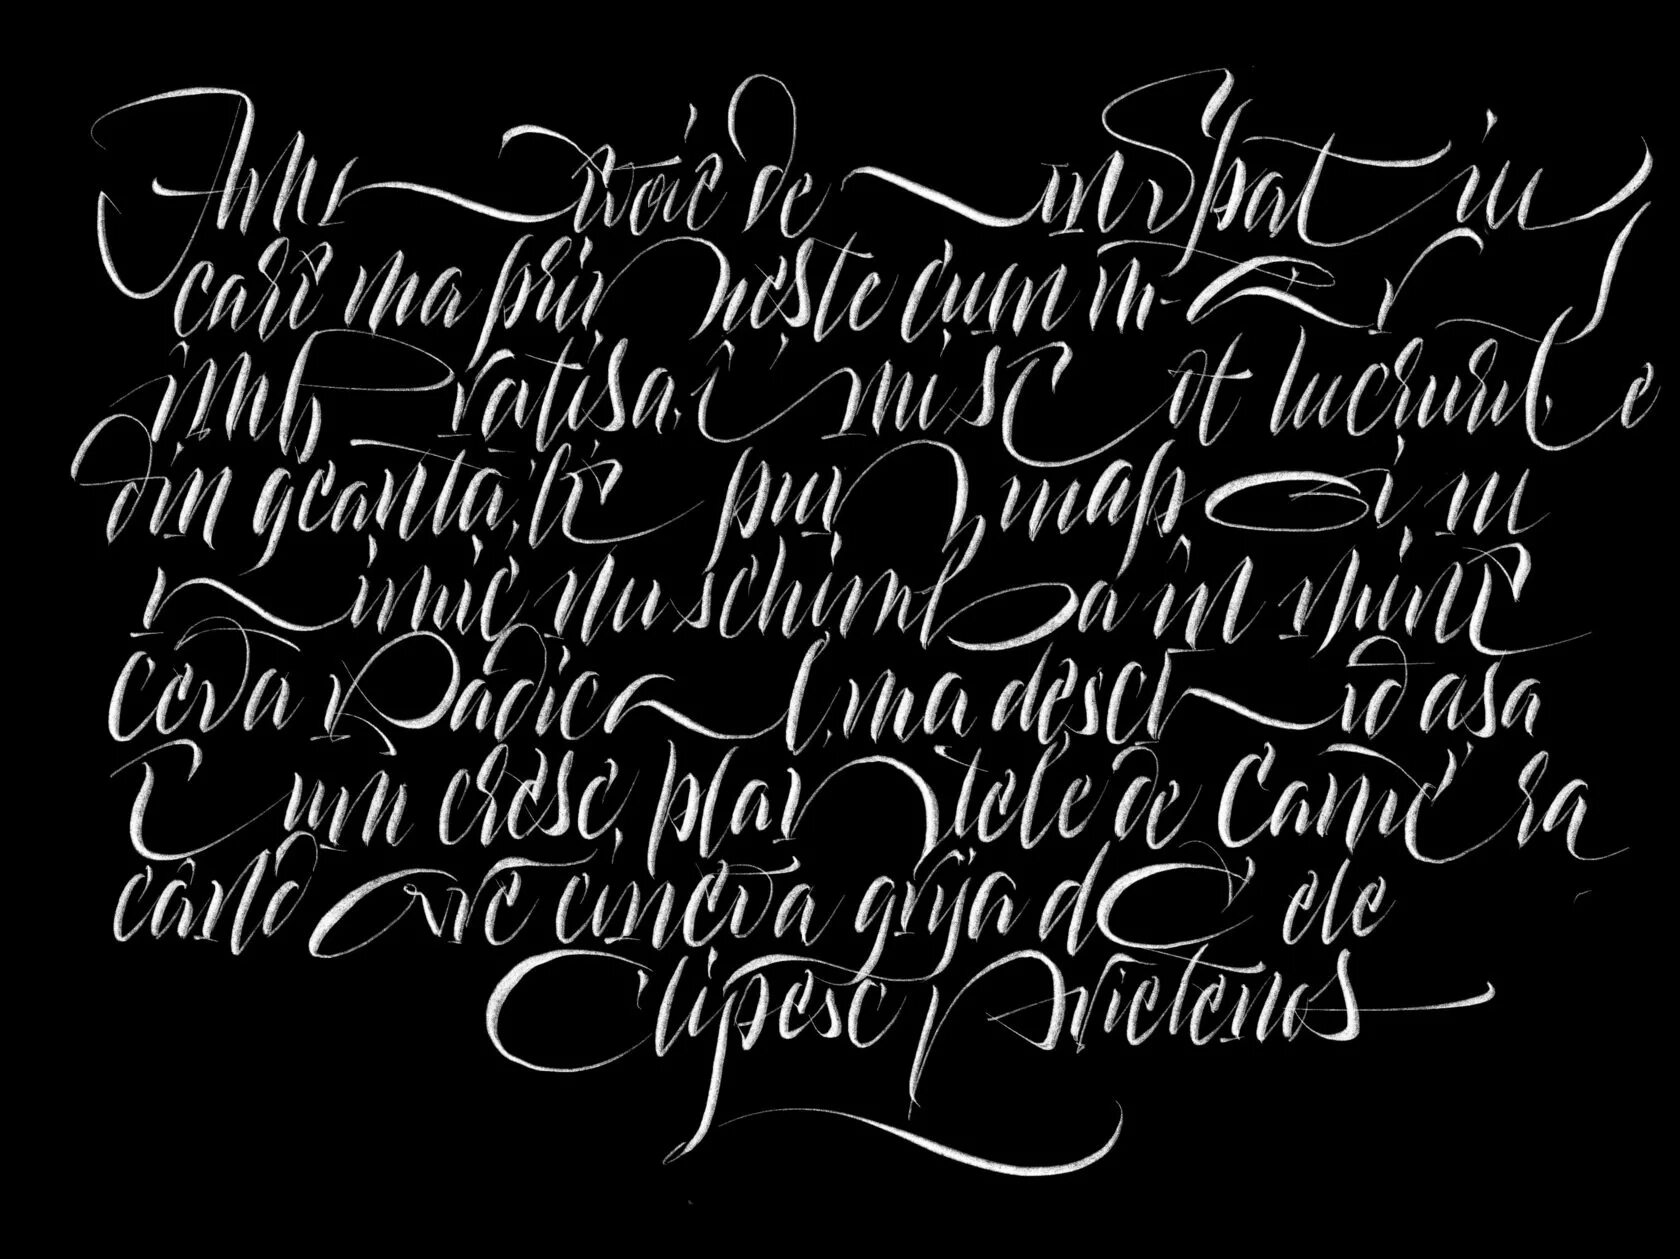 nevoie de un spatiu
care ma primeste cum m-ar
imbratisa, îmi scot lucrurile
din geanta, le pun inapoi,
nimic nu schimba în mine
ceva radical, ma deschid asa
cum cresc plantele de camera
când are cineva grija de ele
clipesc prietenos